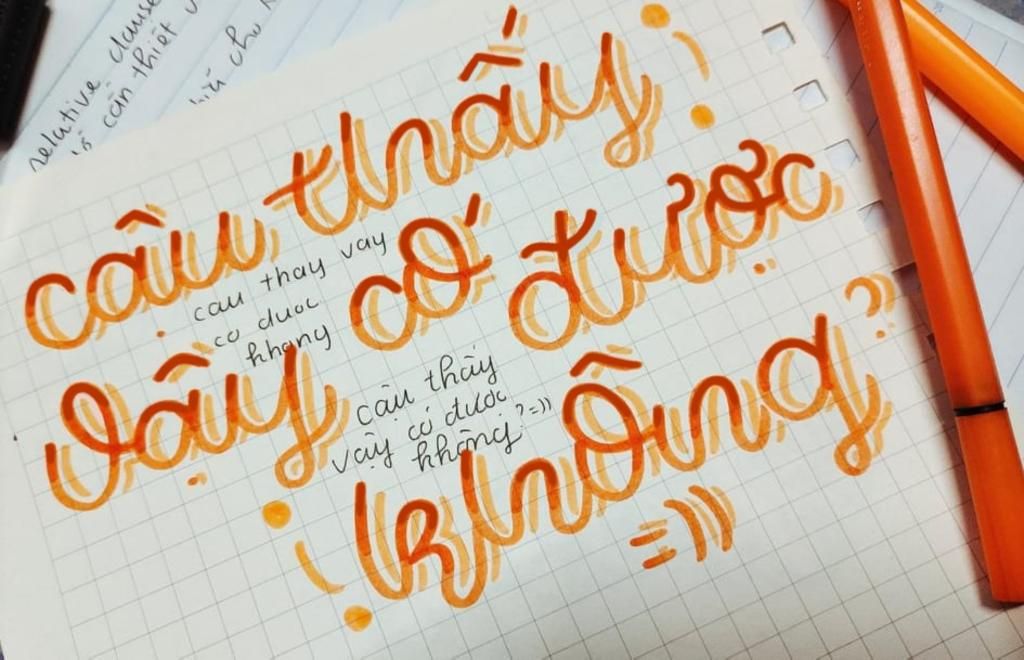 relative clause
cần thiết
cậu thấy
vậy có được
không? =)))
cau thay vay
co duoc
khong
cậu thấy
vậy có được
không? =))